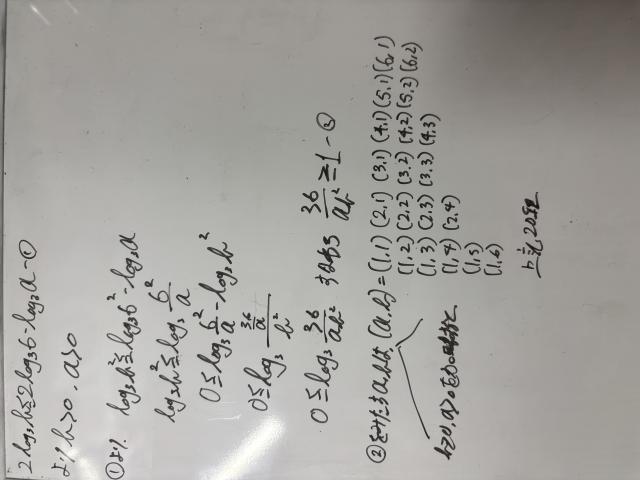 2log₃b≦2log₃6-log₃a-①
より b>0, a>0
①より log₃b²≦log₃6²-log₃a
log₃b²≦log₃6²/a
0≦log₃6²/a-log₃b²
0≦log₃(36/a)/b²
0≦log₃36/ab² 36/ab²≧1-②
②をみたすa,bは、(a,b)=(1,1)(2,1)(3,1)(4,1)(5,1)(6,1)
(1,2)(2,2)(3,2)(4,2)(5,2)(6,2)
(1,3)(2,3)(3,3)(4,3)
(1,4)(2,4)
(1,5)
(1,6)
b>0, a>0
20通り